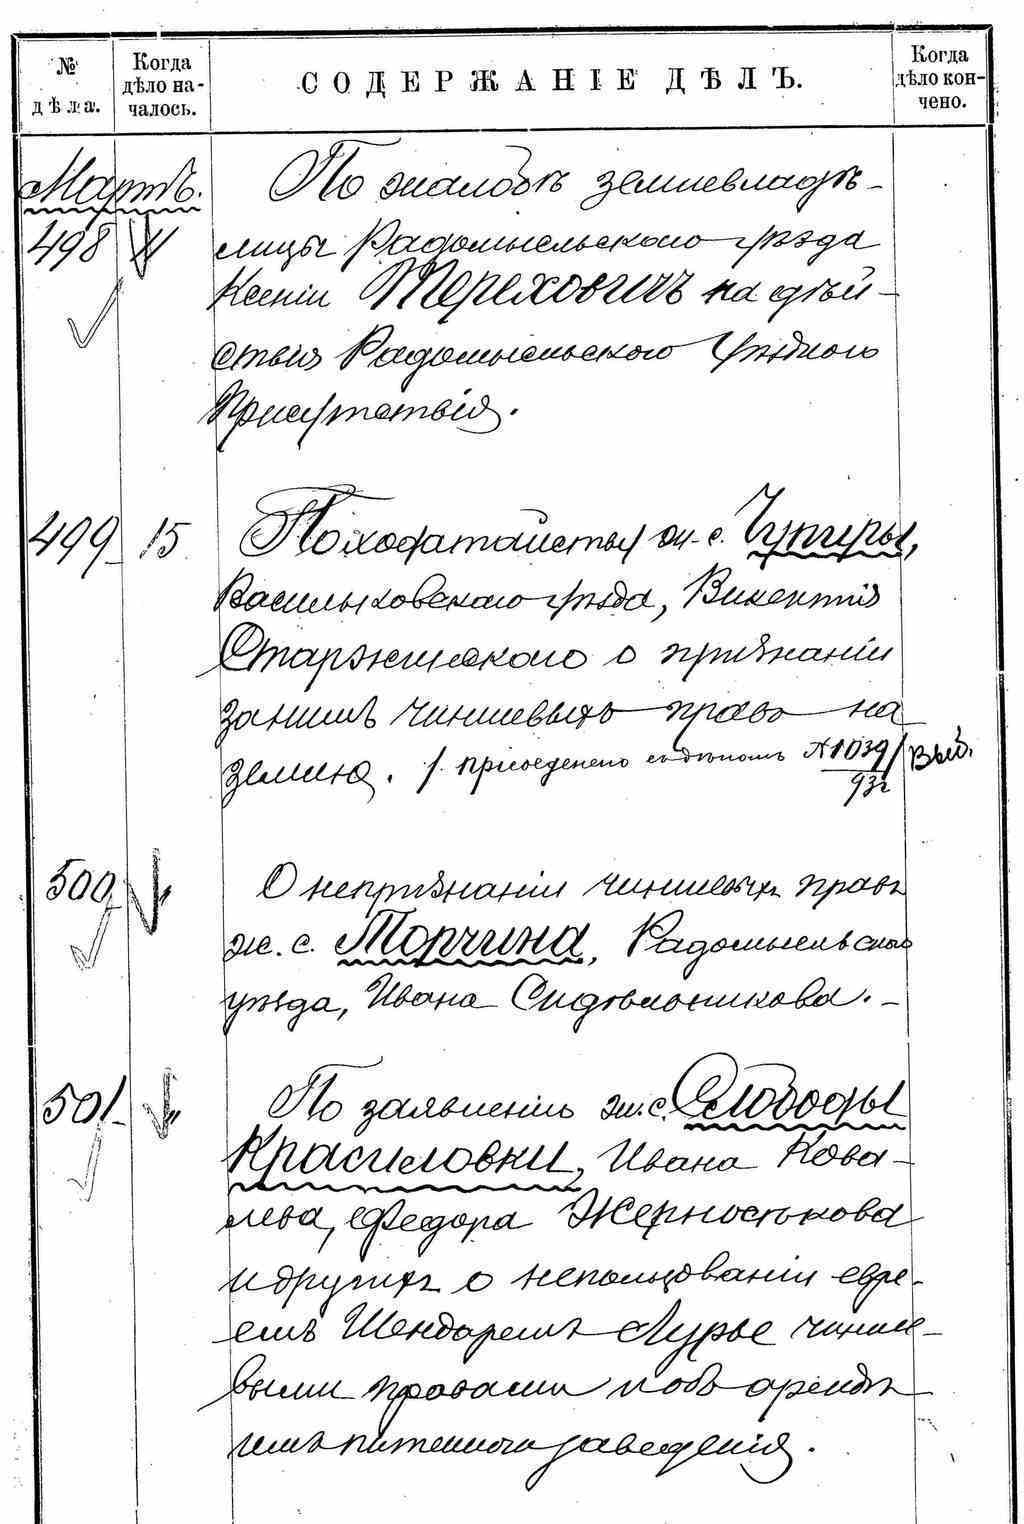 № дѣла.
Когда дѣло началось.
СОДЕРЖАНІЕ ДѢЛЪ.
Когда дѣло кончено.
Мартъ.
498 11 По жалобѣ землевладѣ-
лицы Радомысльскаго уѣзда
Ксеніи Тереховичъ на дѣй-
ствія Радомысльскаго Уѣзднаго
Присутствія.
499 15 По ходатайству ж. с. Чупиры,
Васильковскаго уѣзда, Викентія
Старжинскаго о признаніи
за нимъ чиншевыхъ правъ на
землю. /. присоединено къ дѣламъ № 1039/93г Выб.
500 " О непризнаніи чиншевыхъ правъ
ж. с. Торчина, Радомысльскаго
уѣзда, Ивана Сидѣльникова. -
501 " По заявленію ж. с. Слободы
Красиловки, Ивана Кова-
лева, Федора Жерносѣкова
и другихъ о непользованіи евре-
емъ Шендаремъ Лурье чинше-
выми правами и объ арендѣ
имъ питейнаго заведенія.